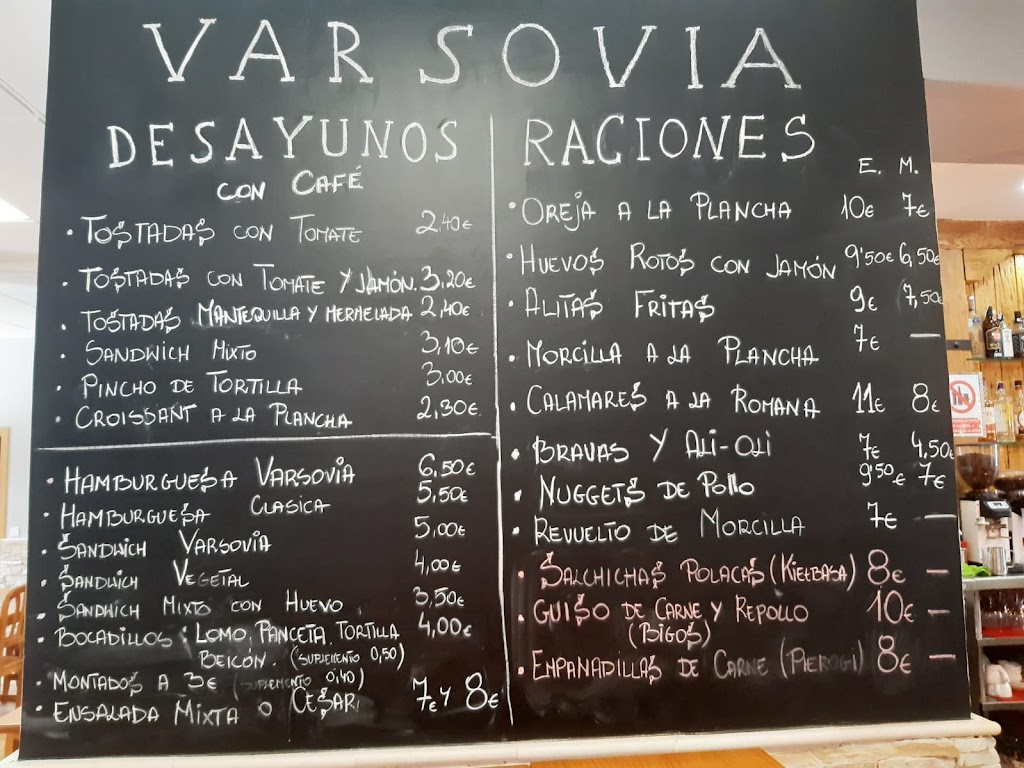 VARSOVIA
DESAYUNOS
CON CAFÉ
• TOSTADAS CON TOMATE 2,40€
• TOSTADAS CON TOMATE Y JAMÓN. 3,20€
• TOSTADAS MANTEQUILLA Y MERMELADA 2,40€
• SANDWICH MIXTO 3,10€
• PINCHO DE TORTILLA 3,00€
• CROISSANT A LA PLANCHA 2,30€
• HAMBURGUESA VARSOVIA 6,50€
• HAMBURGUESA CLASICA 5,50€
• SANDWICH VARSOVIA 5,00€
• SANDWICH VEGETAL 4,00€
• SANDWICH MIXTO CON HUEVO 3,50€
• BOCADILLOS: LOMO, PANCETA, TORTILLA 4,00€
BEICÓN. (SUPLEMENTO 0,50)
• MONTADOS A 3€ (SUPLEMENTO 0,40)
• ENSALADA MIXTA O CESAR 7€ Y 8€
RACIONES
E. M.
• OREJA A LA PLANCHA 10€ 7€
• HUEVOS ROTOS CON JAMÓN 9'50€ 6,50€
• ALITAS FRITAS 9€ 7,50€
• MORCILLA A LA PLANCHA 7€ —
• CALAMARES A LA ROMANA 11€ 8€
• BRAVAS Y ALI-OLI 7€ 4,50€
• NUGGETS DE POLLO 9'50€ 7€
• REVUELTO DE MORCILLA 7€ —
• SALCHICHAS POLACAS (KIEŁBASA) 8€ —
• GUISO DE CARNE Y REPOLLO 10€ —
(BIGOS)
• EMPANADILLAS DE CARNE (PIEROGI) 8€ —